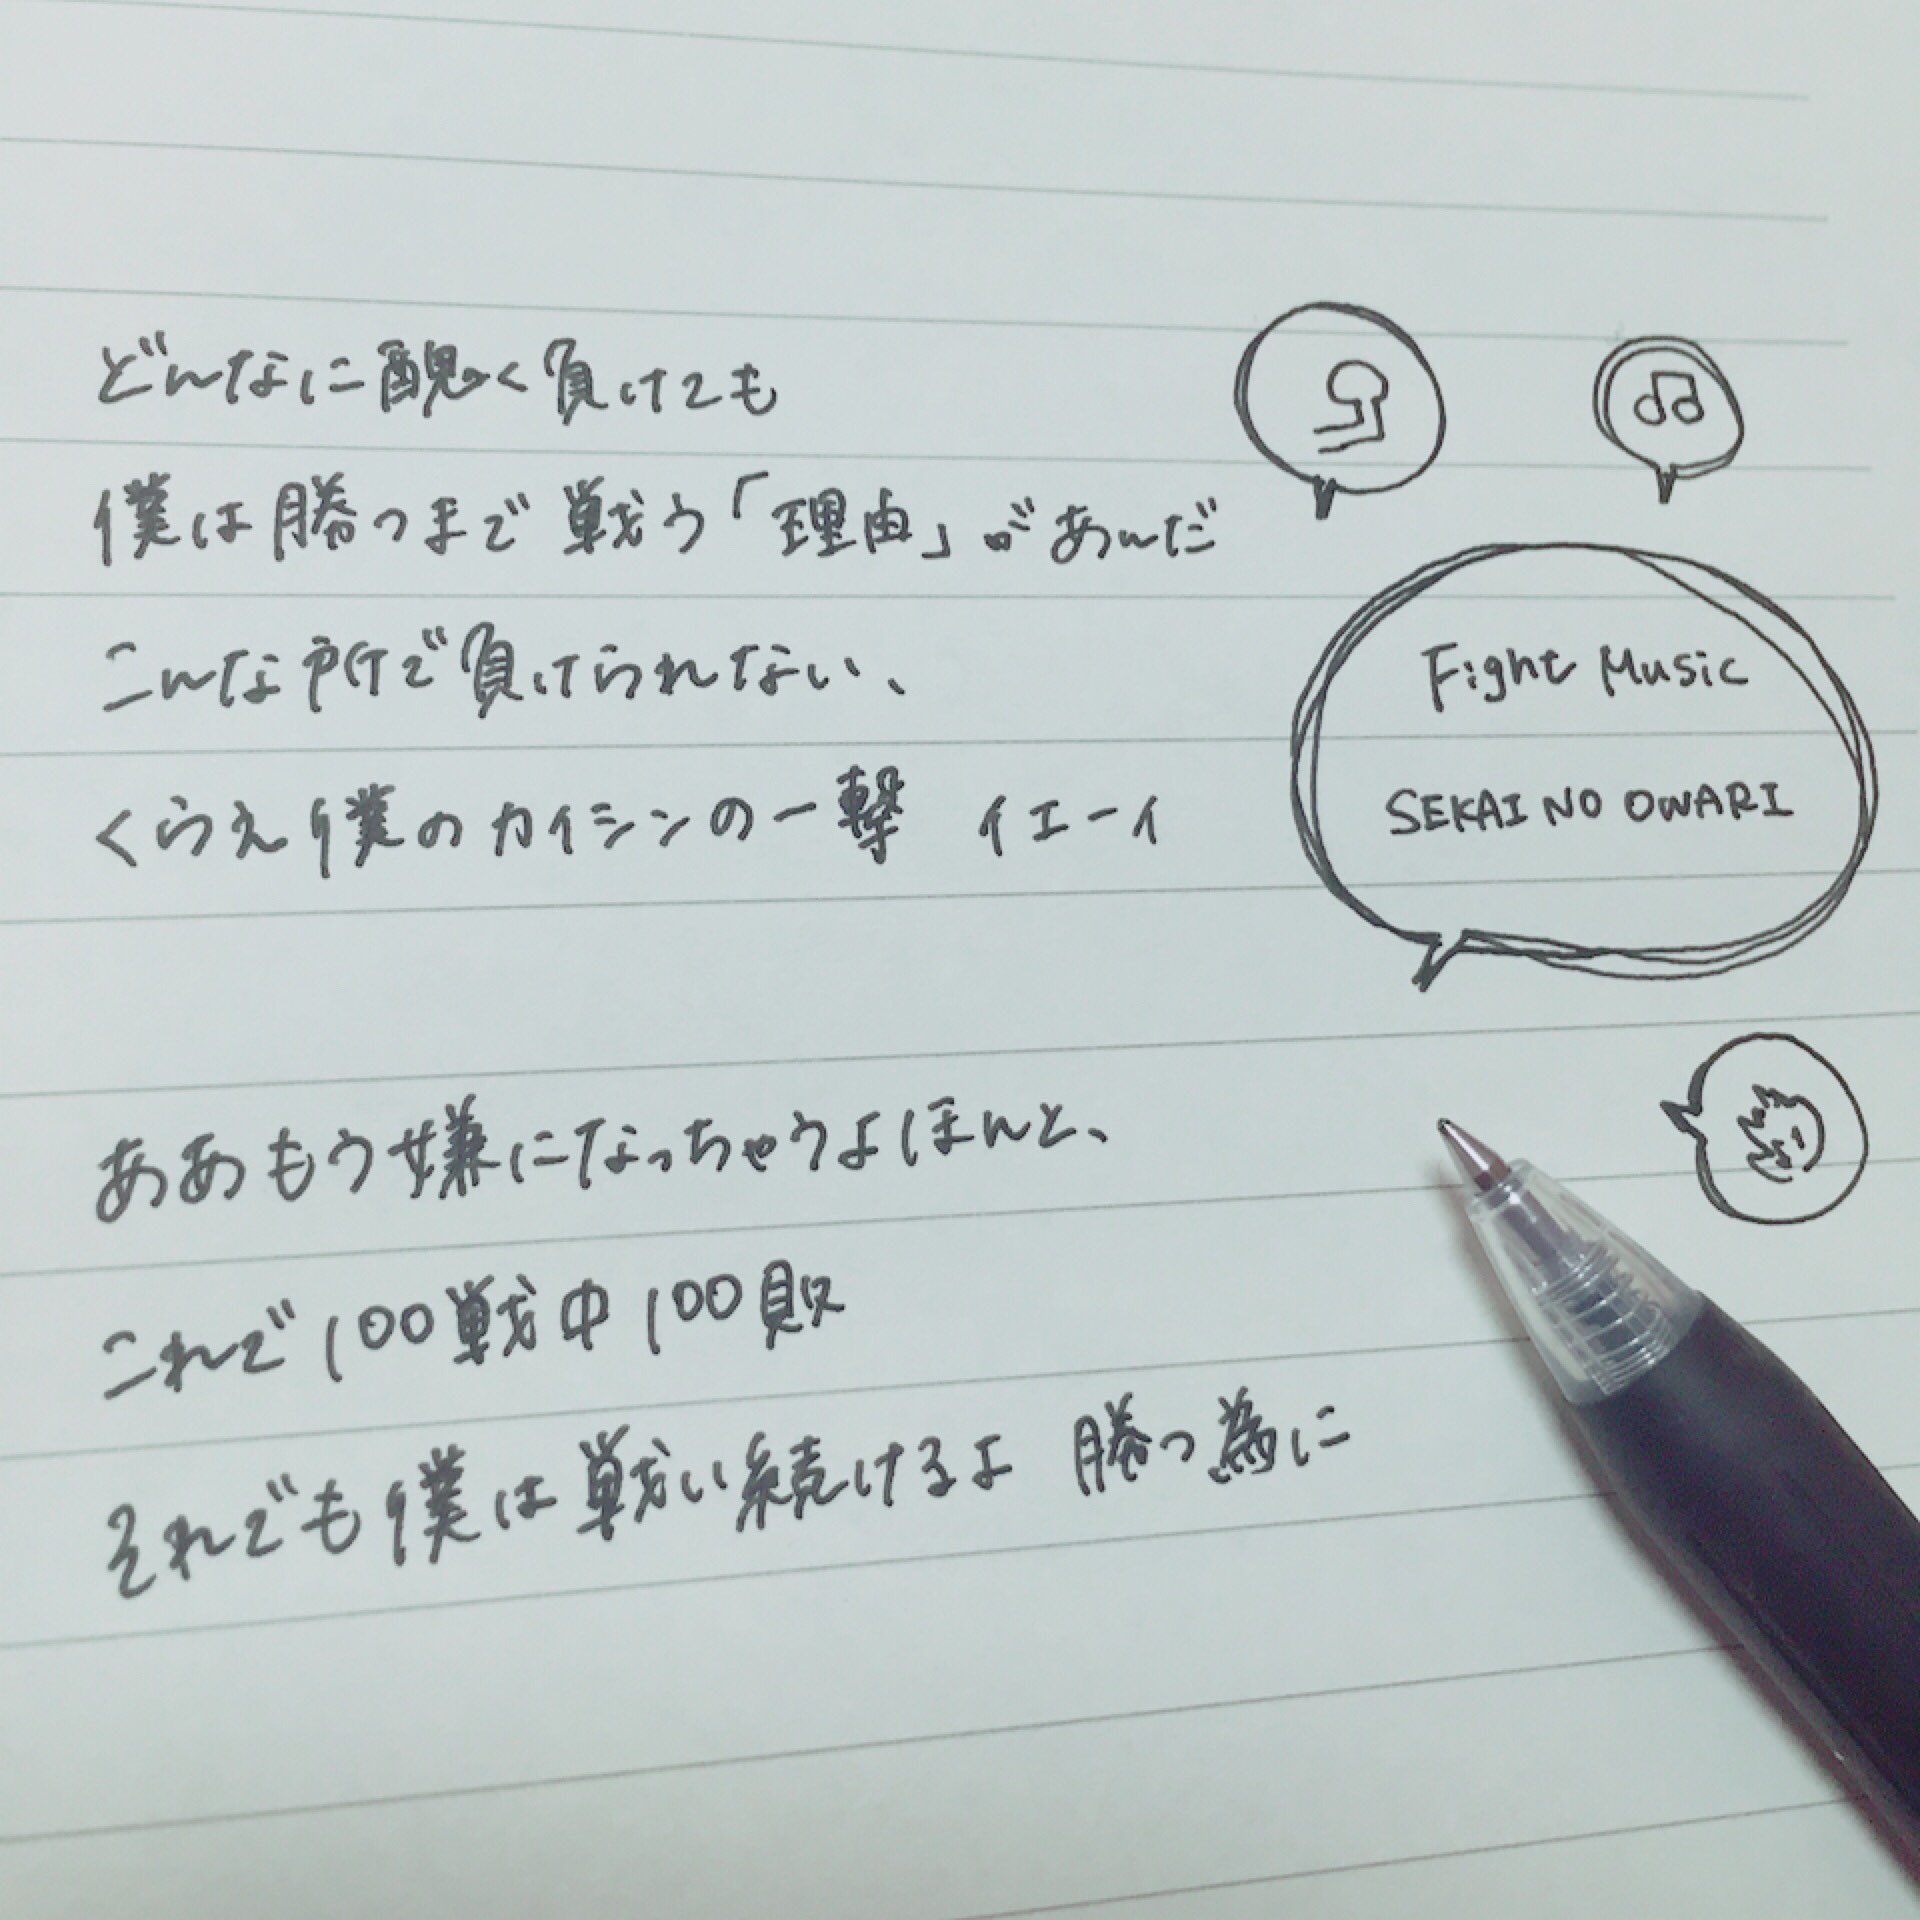 どんなに醜く負けても
僕は勝つまで戦う「理由」があんだ
こんな所で負けられない、
くらえ僕のカイシンの一撃 イエーイ
Fight Music
SEKAI NO OWARI
ああもう嫌になっちゃうよほんと、
これで100戦中100敗
それでも僕は戦い続けるよ 勝つ為に